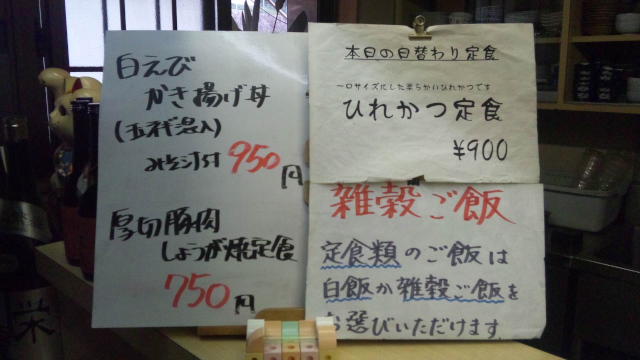 白えび
かき揚げ丼
みそ汁付 950円
厚切豚肉
しょうが焼定食
750円
本日の日替わり定食
一口サイズにした柔らかいひれかつです
ひれかつ定食
¥900
雑穀ご飯
定食類のご飯は
白飯か雑穀ご飯を
お選びいただけます